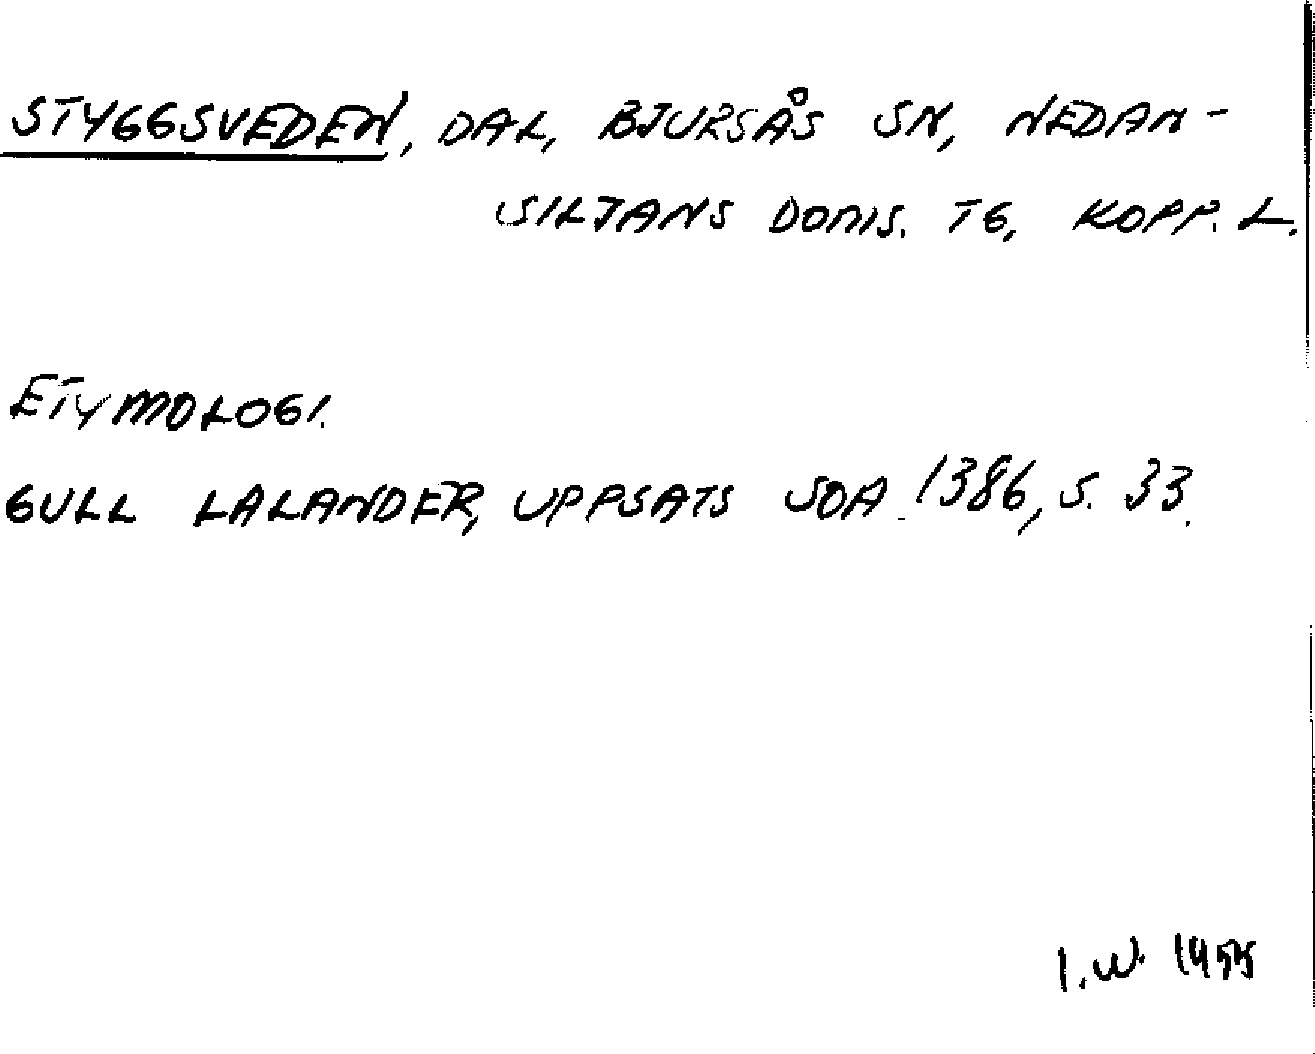 STYGGSVEDEN, DAL, BJURSÅS SN, NEDAN-
SILJANS DOMS. TG, KOPP. L.
ETYMOLOGI.
GULL LALANDER, UPPSATS SOA. 1386, S. 33.
I.W. 1955